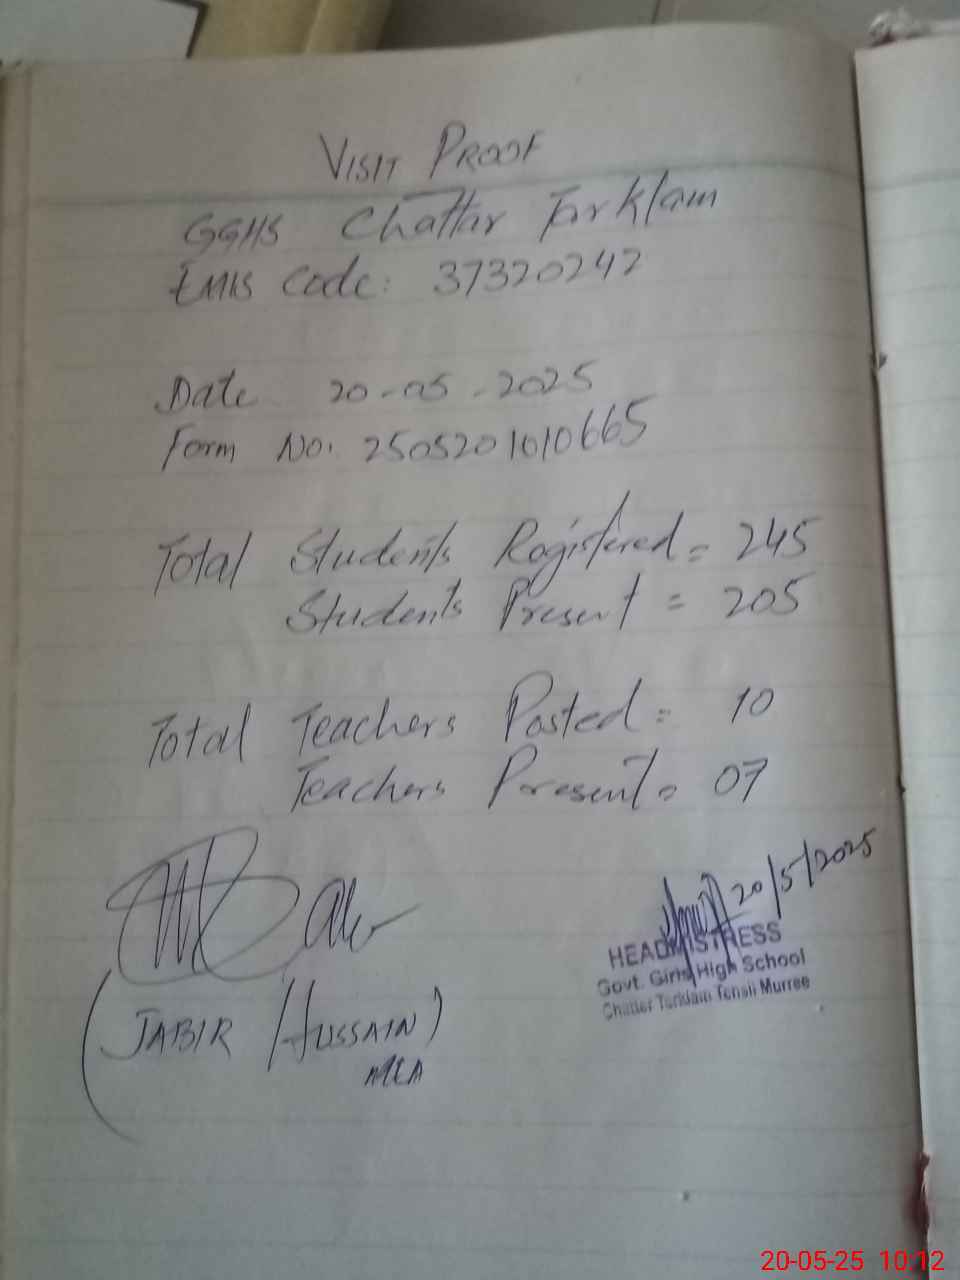 VISIT PROOF
GGHS Chattar Tarklam
EMIS Code: 37320242
Date 20-05-2025
Form No. 2505201010665
Total Students Registered = 245
Students Present = 205
Total Teachers Posted = 10
Teachers Present = 07
20/5/2025
HEADMISTRESS
Govt. Girls High School
Chatter Tarklam Tehsil Murree
(JABIR HUSSAIN)
MEA
20-05-25 10:12